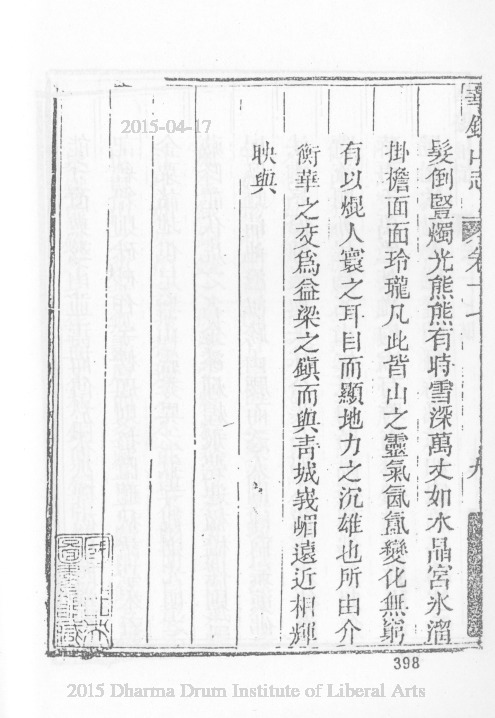 華鎣山志 卷十七 九
髮倒豎燭光熊熊有時雪深萬丈如水晶宮氷溜
掛檐面面玲瓏凡此皆山之靈氣氤氳變化無窮
有以焜人寰之耳目而顯地力之沉雄也所由介
衡華之交爲益梁之鎭而與靑城峩嵋遠近相輝
映與
2015-04-17
398
2015 Dharma Drum Institute of Liberal Arts